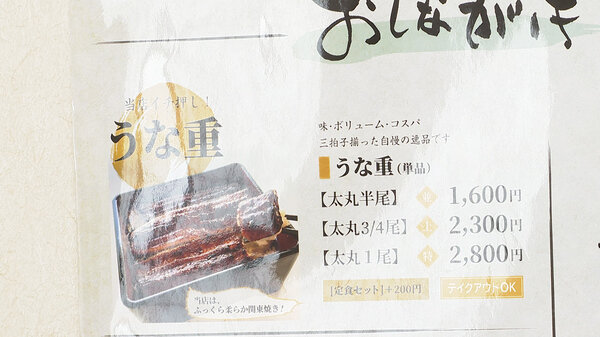 おしながき
当店イチ押し！
うな重
味・ボリューム・コスパ
三拍子揃った自慢の逸品です
うな重(単品)
【太丸半尾】 並 1,600円
【太丸3/4尾】 上 2,300円
【太丸1尾】 特 2,800円
[定食セット]+200円 テイクアウトOK
当店は、
ふっくら柔らか関東焼き！